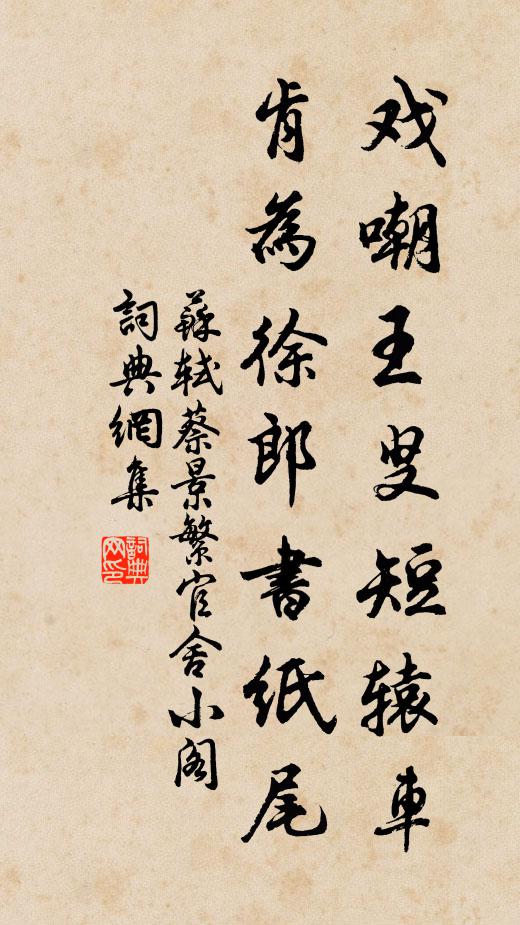 戏嘲王叟短辕車
肯為徐郎書紙尾
蘇軾蔡景繁官舍小阁
詞典網集
詞典
网印